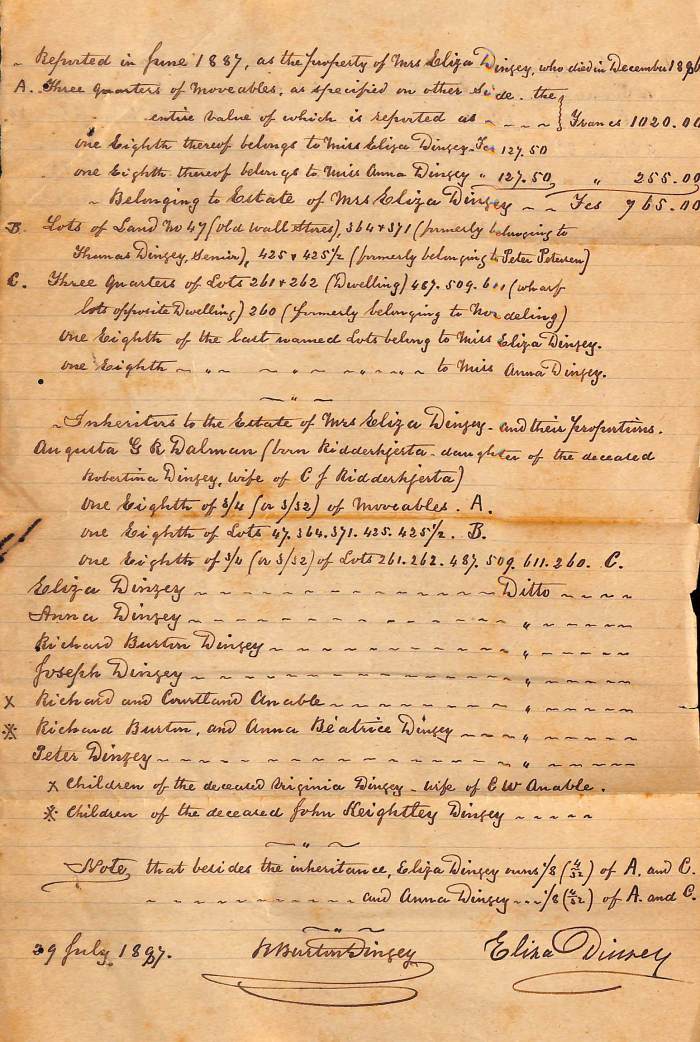 ~ Reported in June 1887, as the property of Mrs Eliza Dinzey, who died in December 1886
A. Three quarters of Moveables, as specified on other side. the
entire value of which is reported as ~ ~ ~ ~ } Francs 1020.00
one Eighth thereof belongs to Miss Eliza Dinzey - Fcs 127.50
one Eighth thereof belongs to Miss Anna Dinzey " 127.50 " 255.00
~ Belonging to Estate of Mrs Eliza Dinzey ~ ~ Fcs 765.00
B. Lots of Land No 47 (old Wall Stores), 364 & 371 (formerly belonging to
Thomas Dinzey, Senior), 425 & 425 1/2 (formerly belonging to Peter Petersen)
C. Three Quarters of Lots 261 & 262 (Dwelling) 487. 509. 611 (wharf
lots opposite Dwelling) 260 (formerly belonging to Norderling)
one Eighth of the last named Lots belong to Miss Eliza Dinzey.
one Eighth ~ " ~ " ~ " ~ " ~ to Miss Anna Dinzey.
~ " ~
~ Inheritors to the Estate of Mrs Eliza Dinzey - and their proportions.
Augusta G R Dalman (born Ridderhjerta - daughter of the deceased
Robertina Dinzey, wife of C J Ridderhjerta)
one Eighth of 3/4 (or 3/32) of Moveables. A.
one Eighth of Lots 47. 364. 371. 425. 425 1/2. B.
one Eighth of 3/4 (or 3/32) of Lots 261. 262. 487. 509. 611. 260. C.
Eliza Dinzey ~ ~ ~ ~ ~ ~ Ditto ~ ~ ~ ~
Anna Dinzey ~ ~ ~ ~ ~ ~ " ~ ~ ~ ~
Richard Burton Dinzey ~ ~ ~ ~ ~ ~ " ~ ~ ~ ~
Joseph Dinzey ~ ~ ~ ~ ~ ~ " ~ ~ ~ ~
x Richard and Courtland Anable ~ ~ ~ ~ ~ ~ " ~ ~ ~ ~
※ Richard Burton, and Anna Béatrice Dinzey ~ ~ ~ " ~ ~ ~ ~
Peter Dinzey ~ ~ ~ ~ ~ ~ " ~ ~ ~ ~
x Children of the deceased Virginia Dinzey - wife of E W Anable.
※ Children of the deceased John Keightley Dinzey ~ ~ ~ ~ ~
~ " ~
Note, that besides the inheritance, Eliza Dinzey owns 1/8 (4/32) of A. and C.
~ ~ ~ ~ ~ ~ and Anna Dinzey ~ ~ 1/8 (4/32) of A. and C.
~ " ~
29 July 1897. R Burton Dinzey Eliza Dinzey